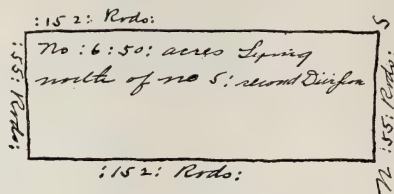 :152: Rods:
S
:55: Rods:
No: 6: 50: acres Lying
north of no 5: second Division
:55: Rods:
N
:152: Rods: